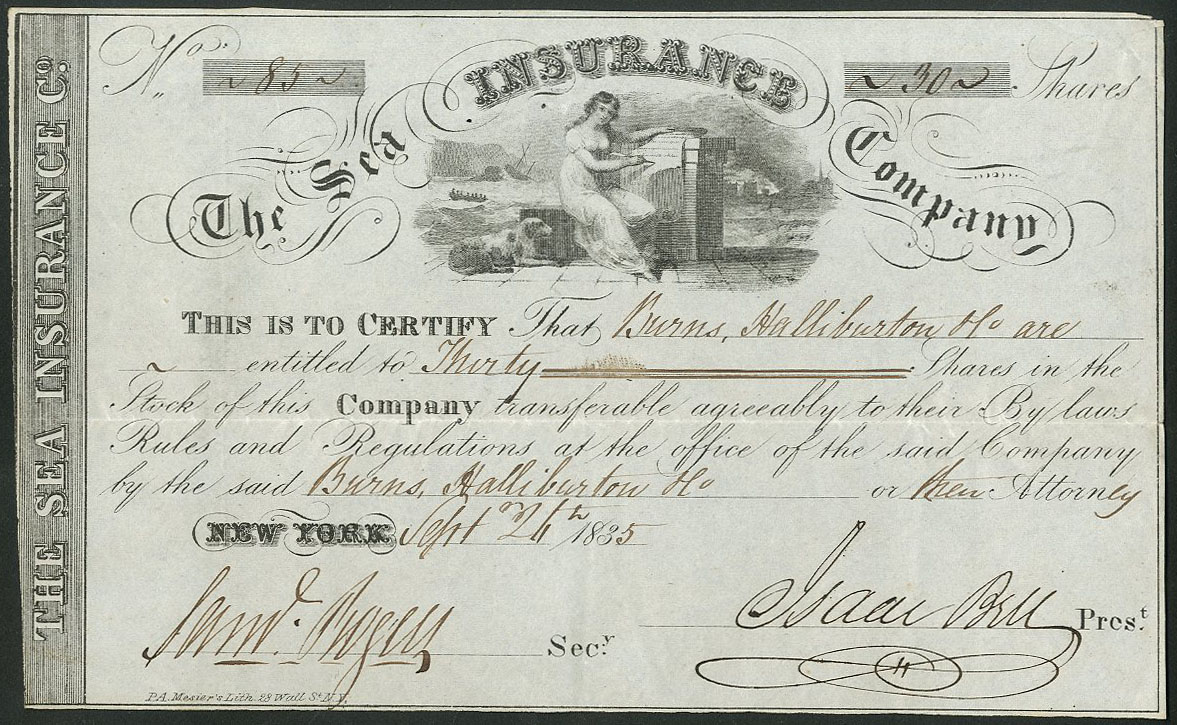 THE SEA INSURANCE CO.
No. 85 30 Shares
The Sea INSURANCE Company
THIS IS TO CERTIFY That Burns, Halliburton & Co are
entitled to Thirty Shares in the
Stock of this Company transferable agreeably to their By laws
Rules and Regulations at the office of the said Company
by the said Burns, Halliburton & Co or their Attorney
NEW YORK Sept 1835
Isaac Bell Pres.t
Saml. Secy.
P.A. Mesier's Lith. 28 Wall St. N.Y.